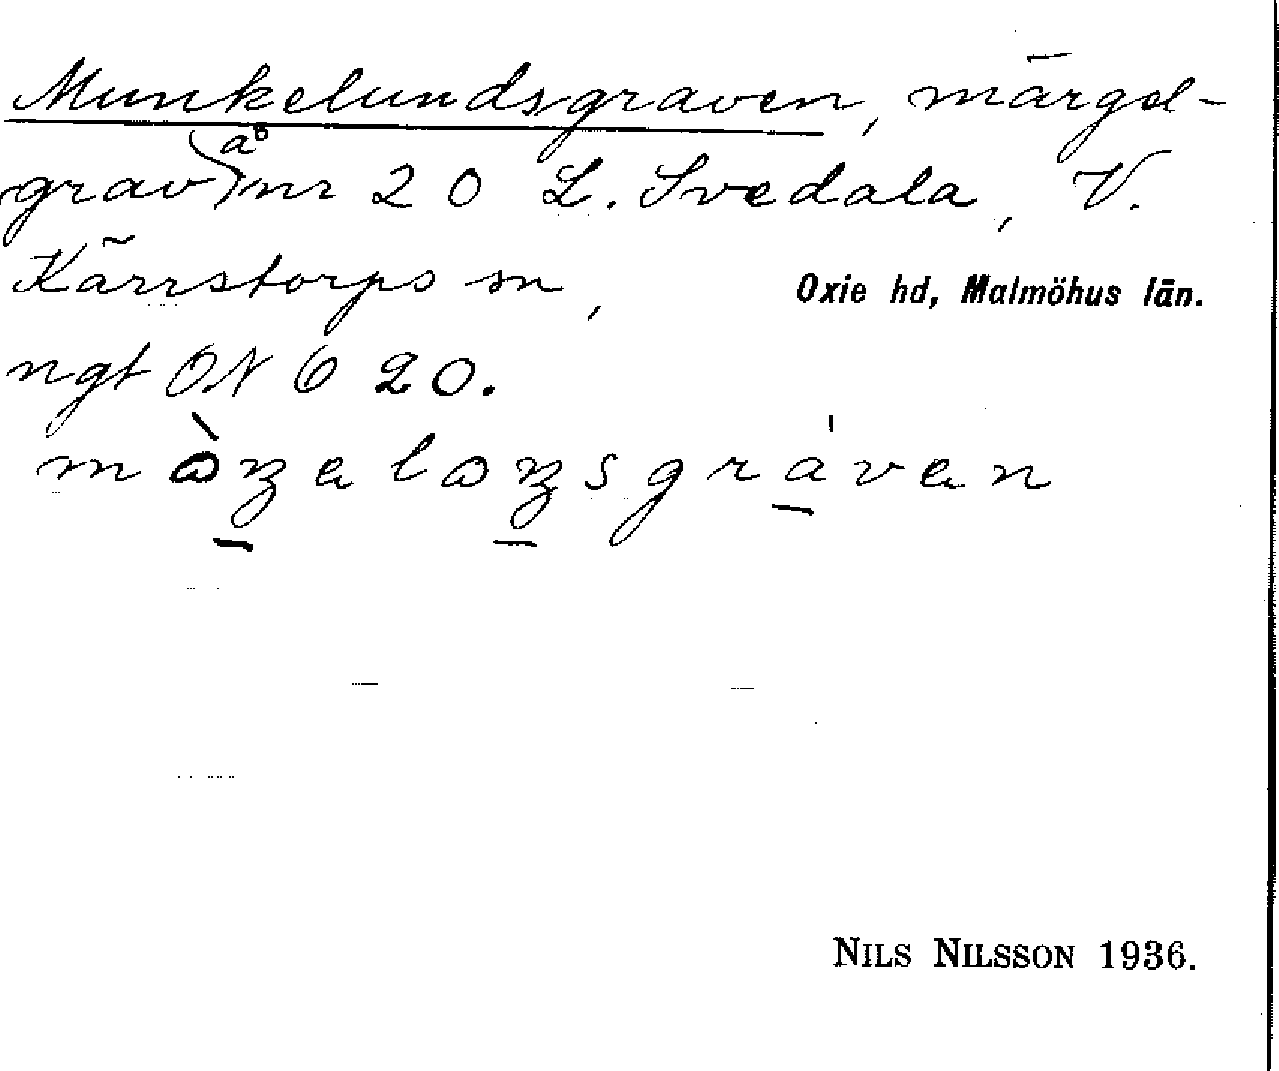 Munkelundsgraven, märgel-
grav på nr 20 L. Svedala, V.
Kärrstorps sn, Oxie hd, Malmöhus län.
ngt ONO 20.
NILS NILSSON 1936.